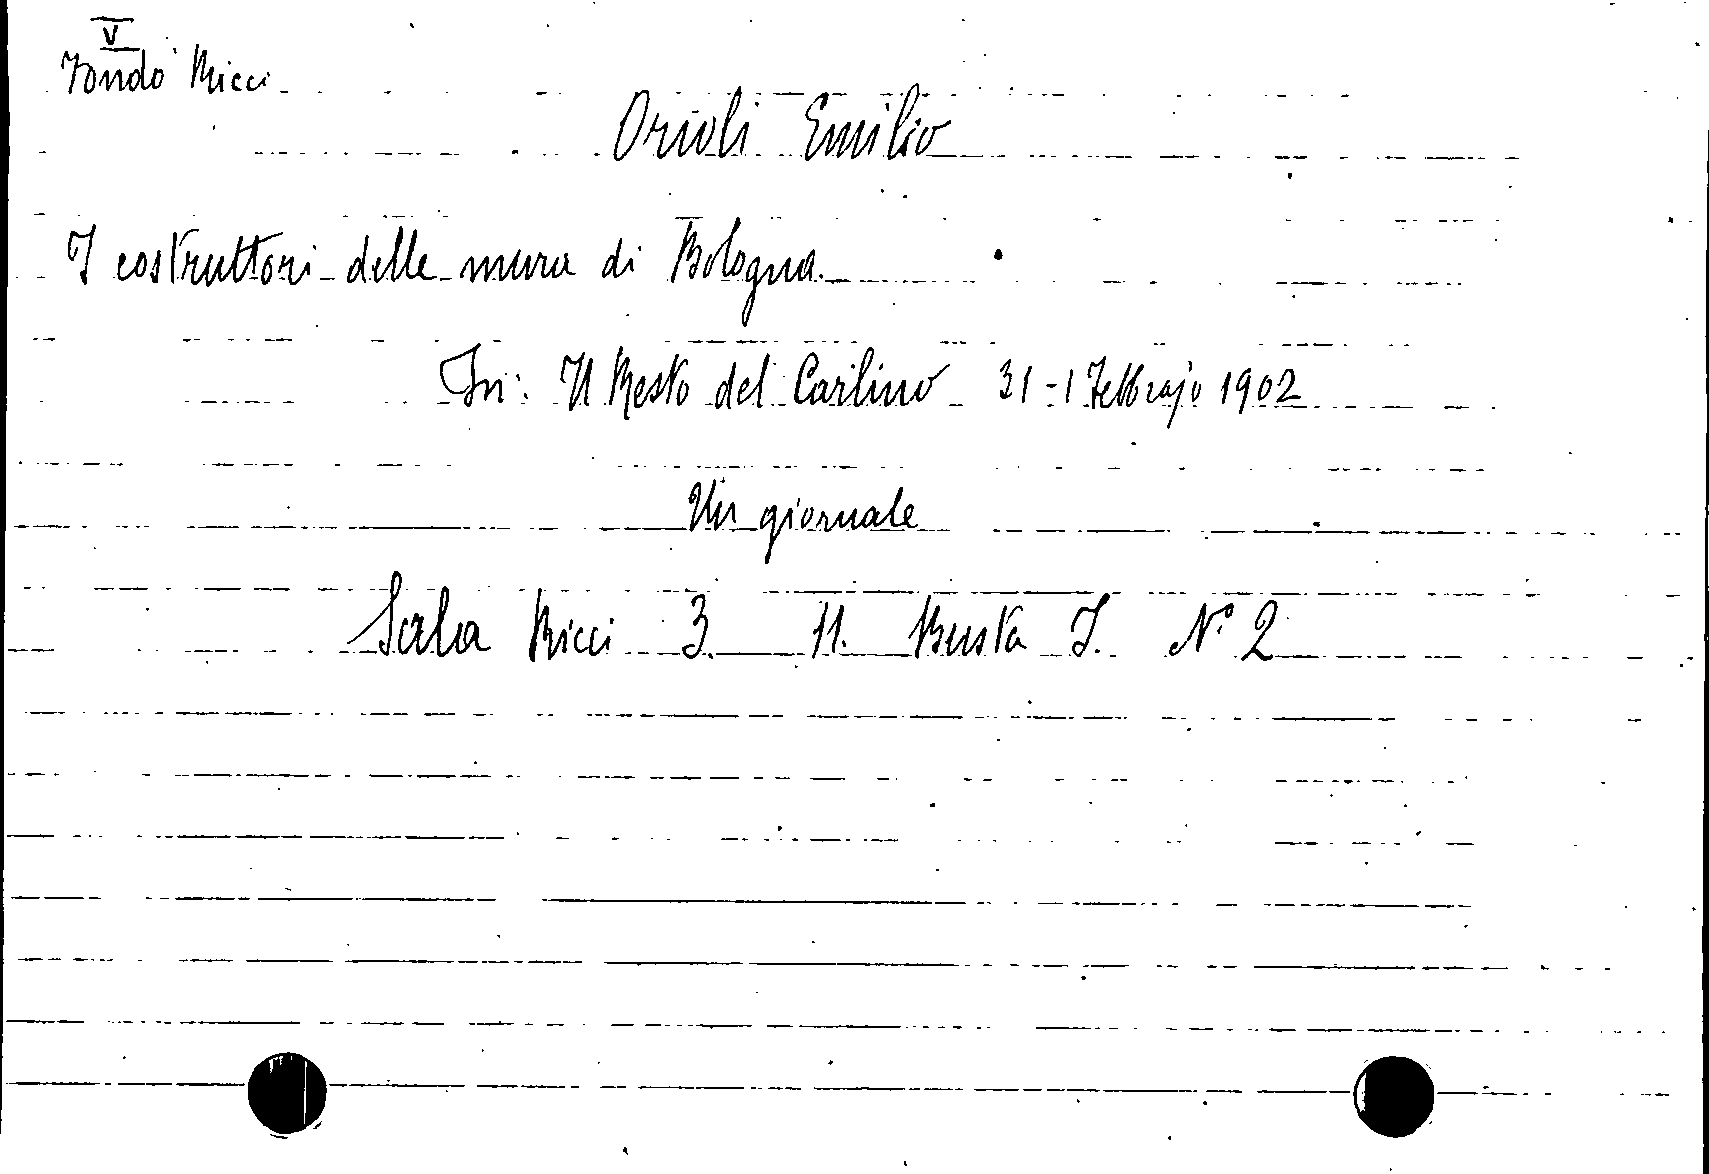 V
Fondo Ricci
Orioli Emilio
I costruttori delle mura di Bologna.
In: Il Resto del Carlino 31-1 Febbrajo 1902
Un giornale
Sala Ricci 3. 11. Busta I. N° 2